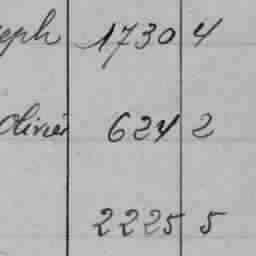 eph 1730 4
Olivier 624 2
2225 5